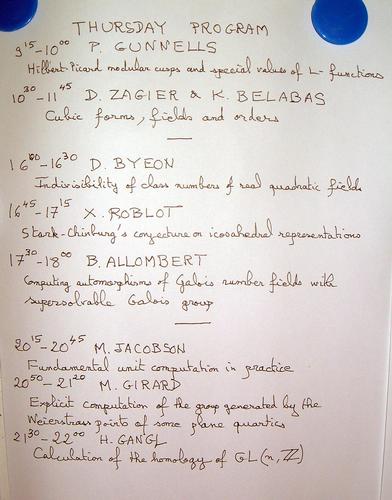 THURSDAY PROGRAM
9 15 - 10 00 P. GUNNELLS
Hilbert-Picard modular cusps and special values of L-functions
10 30 - 11 45 D. ZAGIER & K. BELABAS
Cubic forms, fields and orders
16 00 - 16 30 D. BYEON
Indivisibility of class numbers of real quadratic fields
16 45 - 17 15 X. ROBLOT
Stark-Chinburg's conjecture on icosahedral representations
17 30 - 18 00 B. ALLOMBERT
Computing automorphisms of Galois number fields with
supersolvable Galois group
20 15 - 20 45 M. JACOBSON
Fundamental unit computation in practice
20 50 - 21 20 M. GIRARD
Explicit computation of the group generated by the
Weierstrass points of some plane quartics
21 30 - 22 00 H. GANGL
Calculation of the homology of GL(n, ℤ)